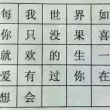 每我世界如
你只没果喜
就欢的生一
爱有过你在
想会